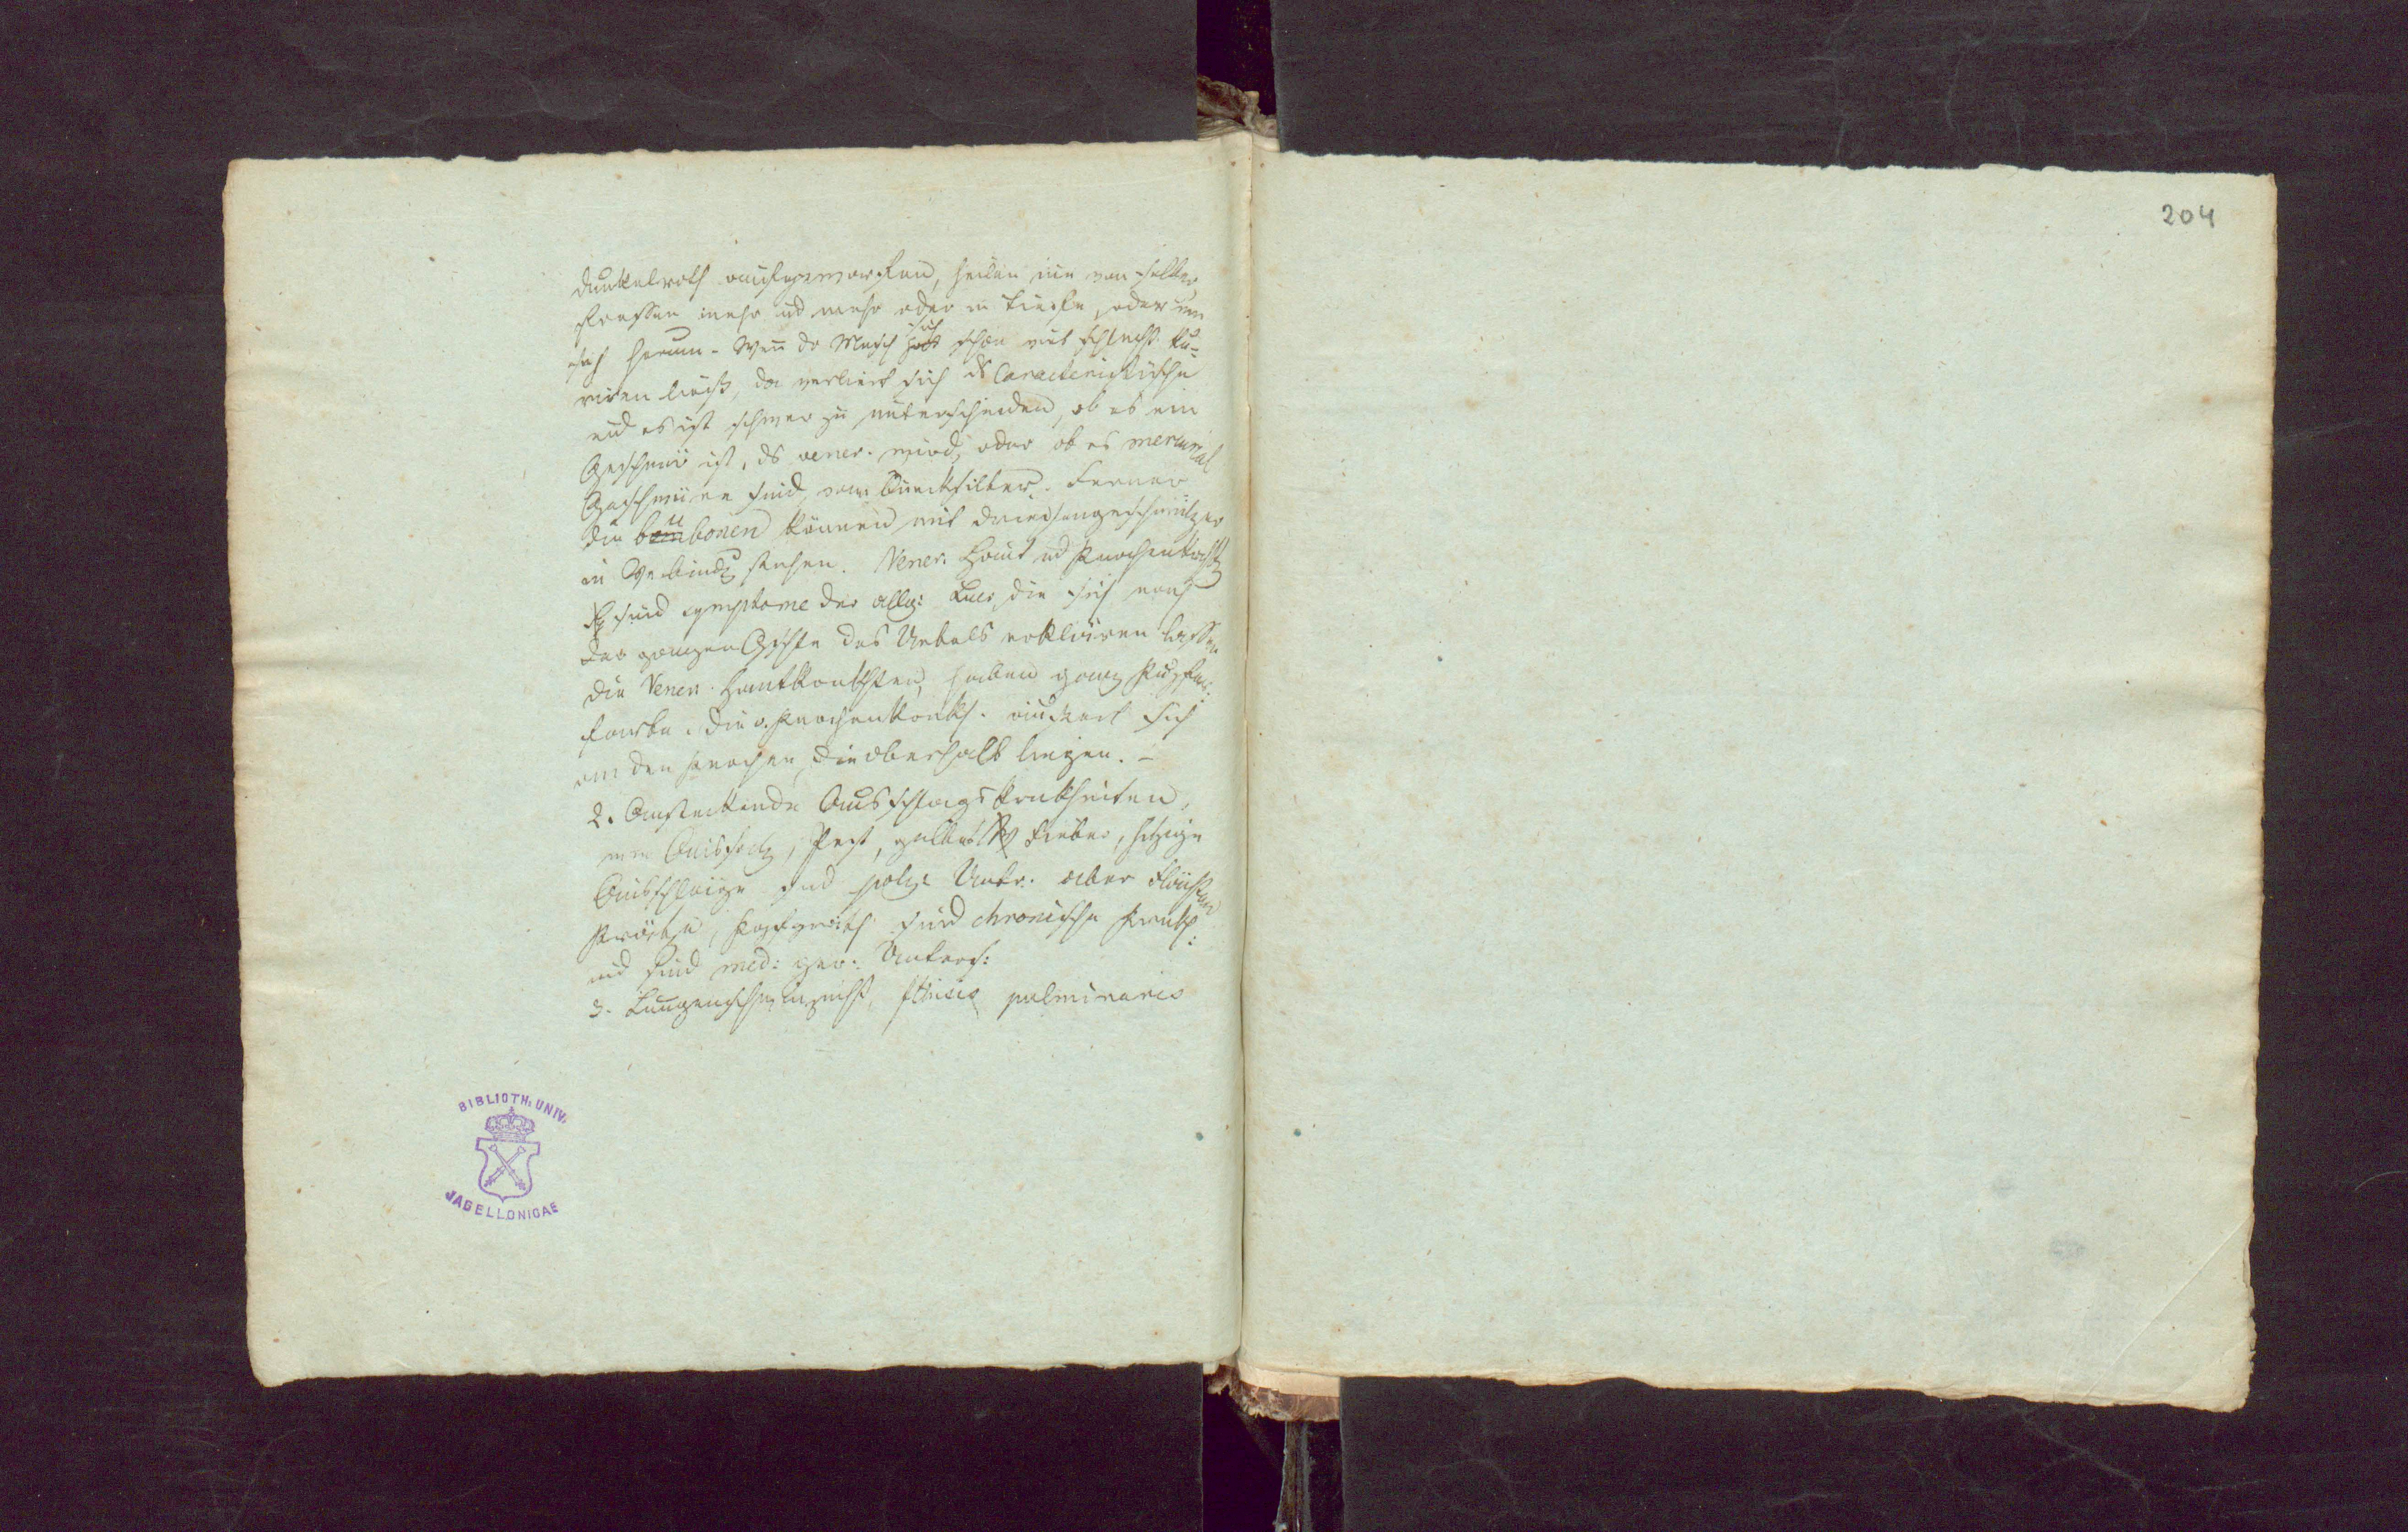 dunkelroth aufgeworfen, heilen nie von selber
fressen mehr und mehr oder in Tiefe, oder um
sich herum. Wenn der Mensch sich schon mit schlecht. ku-
riren ließ, da verliert sich ds Caracteristische
und es ist schwer zu unterscheiden, ob es ein
Geschwür ist, ds vener. wird, oder ob es mercurial
Geschwüre sind vom Quecksilber. Ferner
die bubonen können mit Drüsengeschwülsten
in Verbindg stehen. Vener. Haut und Knochenkrkh
sind symptome der allg: Lues, die sich nach
der ganzen Gschte des Uebels erklären lassen
die Vener. Hautkrankhten, haben ganz Kupfer:
farbe. die v. Knochenkrankh. äussert sich
an den Knochen, die oberhalb liegen. –
2. Ansteckende Ausschlagskrankheiten,
wie Aussatz, Pest, gelbes Fieber, hitzige
Ausschläge sind polz. Unter. aber Flechten
Krätze, Kopfgrind sind chronische Krankh:
und sind med: ger: Unters:
3. Lungenschwindsucht, fthisis pulmonaris
BIBLIOTH. UNIV.
JAGELLONICAE
204